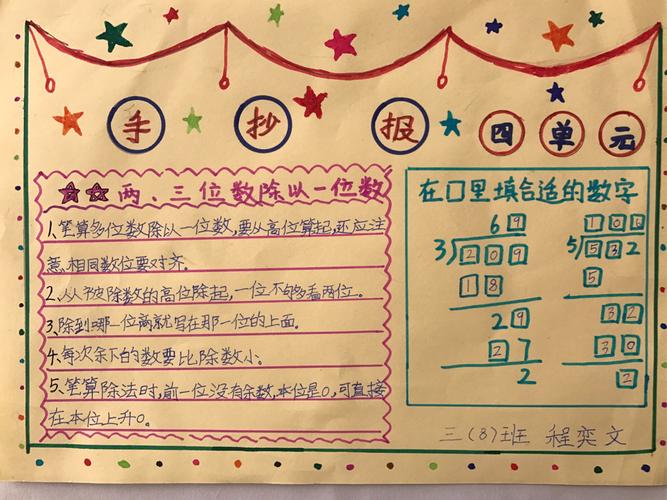 手抄报 四单元
两、三位数除以一位数
1、笔算多位数除以一位数,要从高位算起,还应注
意.相同数位要对齐。
2、从被除数的高位除起,一位不够多看两位。
3、除到哪一位商就写在那一位的上面。
4、每次余下的数要比除数小。
5、笔算除法时,前一位没有余数,本位是0,可直接
在本位上升0。
在□里填合适的数字
69
3 209
18
29
27
2
106
5 532
5
32
30
2
三(8)班 程奕文